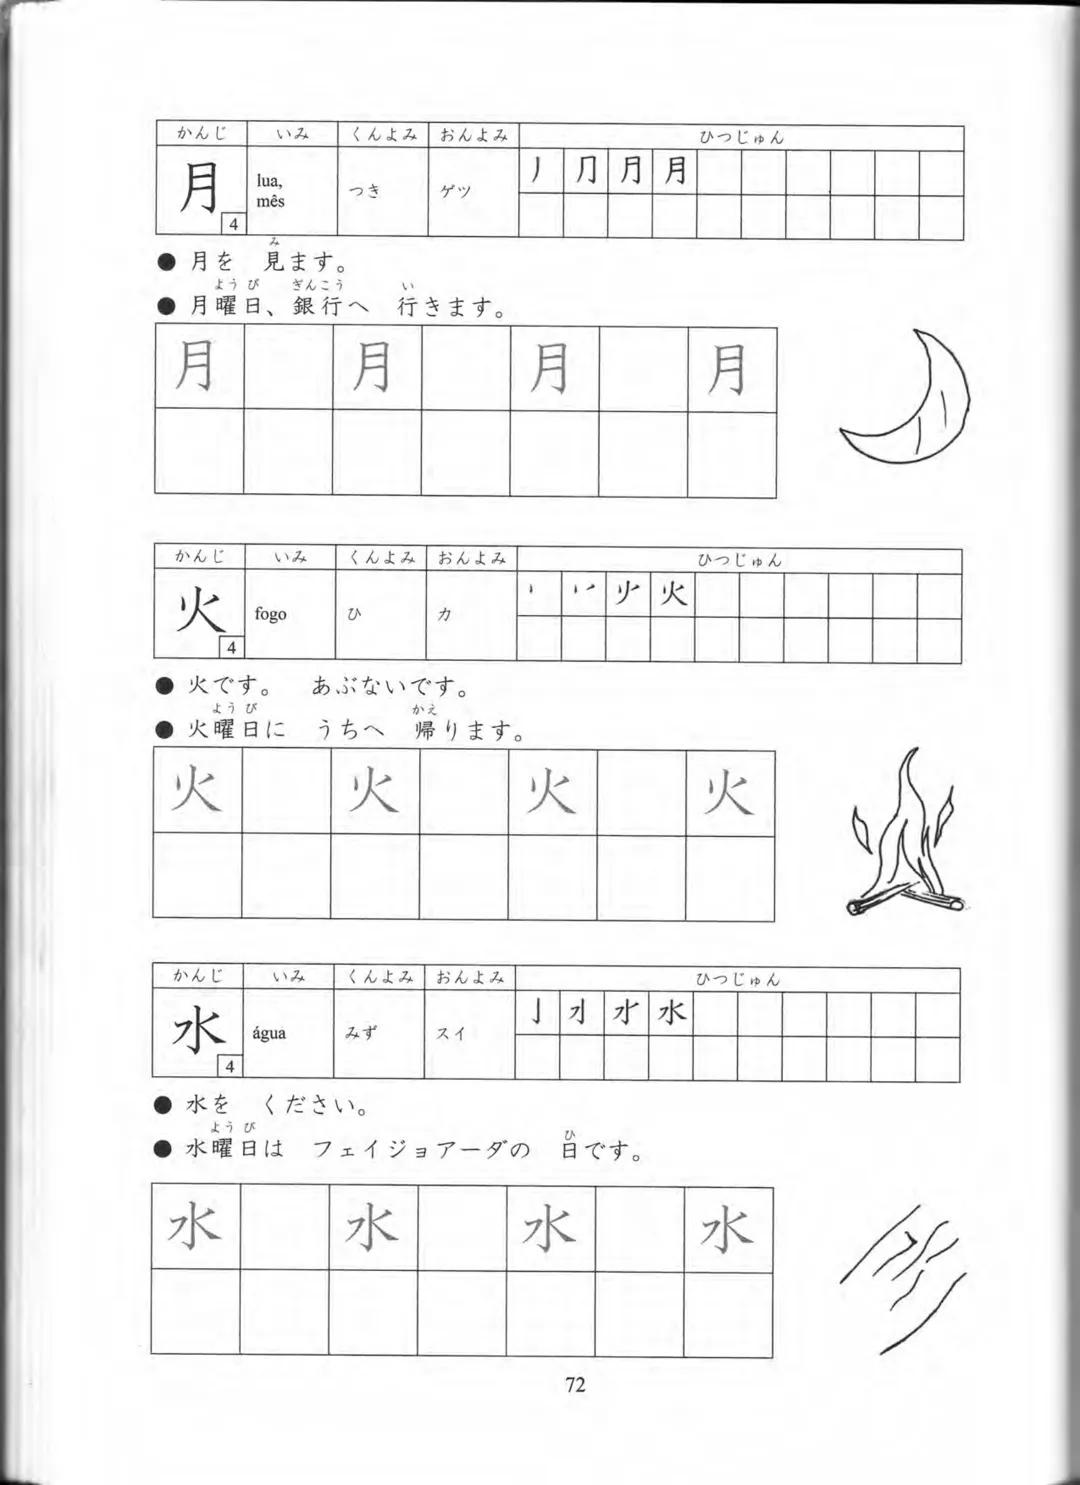 かんじ いみ くんよみ おんよみ ひつじゅん
月 4 lua, mês つき ゲツ 丿 ⺆ 月 月
み
● 月を 見ます。
ようび ぎんこう い
● 月曜日、銀行へ 行きます。
月 月 月 月
かんじ いみ くんよみ おんよみ ひつじゅん
火 4 fogo ひ カ 火
● 火です。 あぶないです。
ようび かえ
● 火曜日に うちへ 帰ります。
火 火 火 火
かんじ いみ くんよみ おんよみ ひつじゅん
水 4 água みず スイ 亅 水
● 水を ください。
ようび ひ
● 水曜日は フェイジョアーダの 日です。
水 水 水 水
72